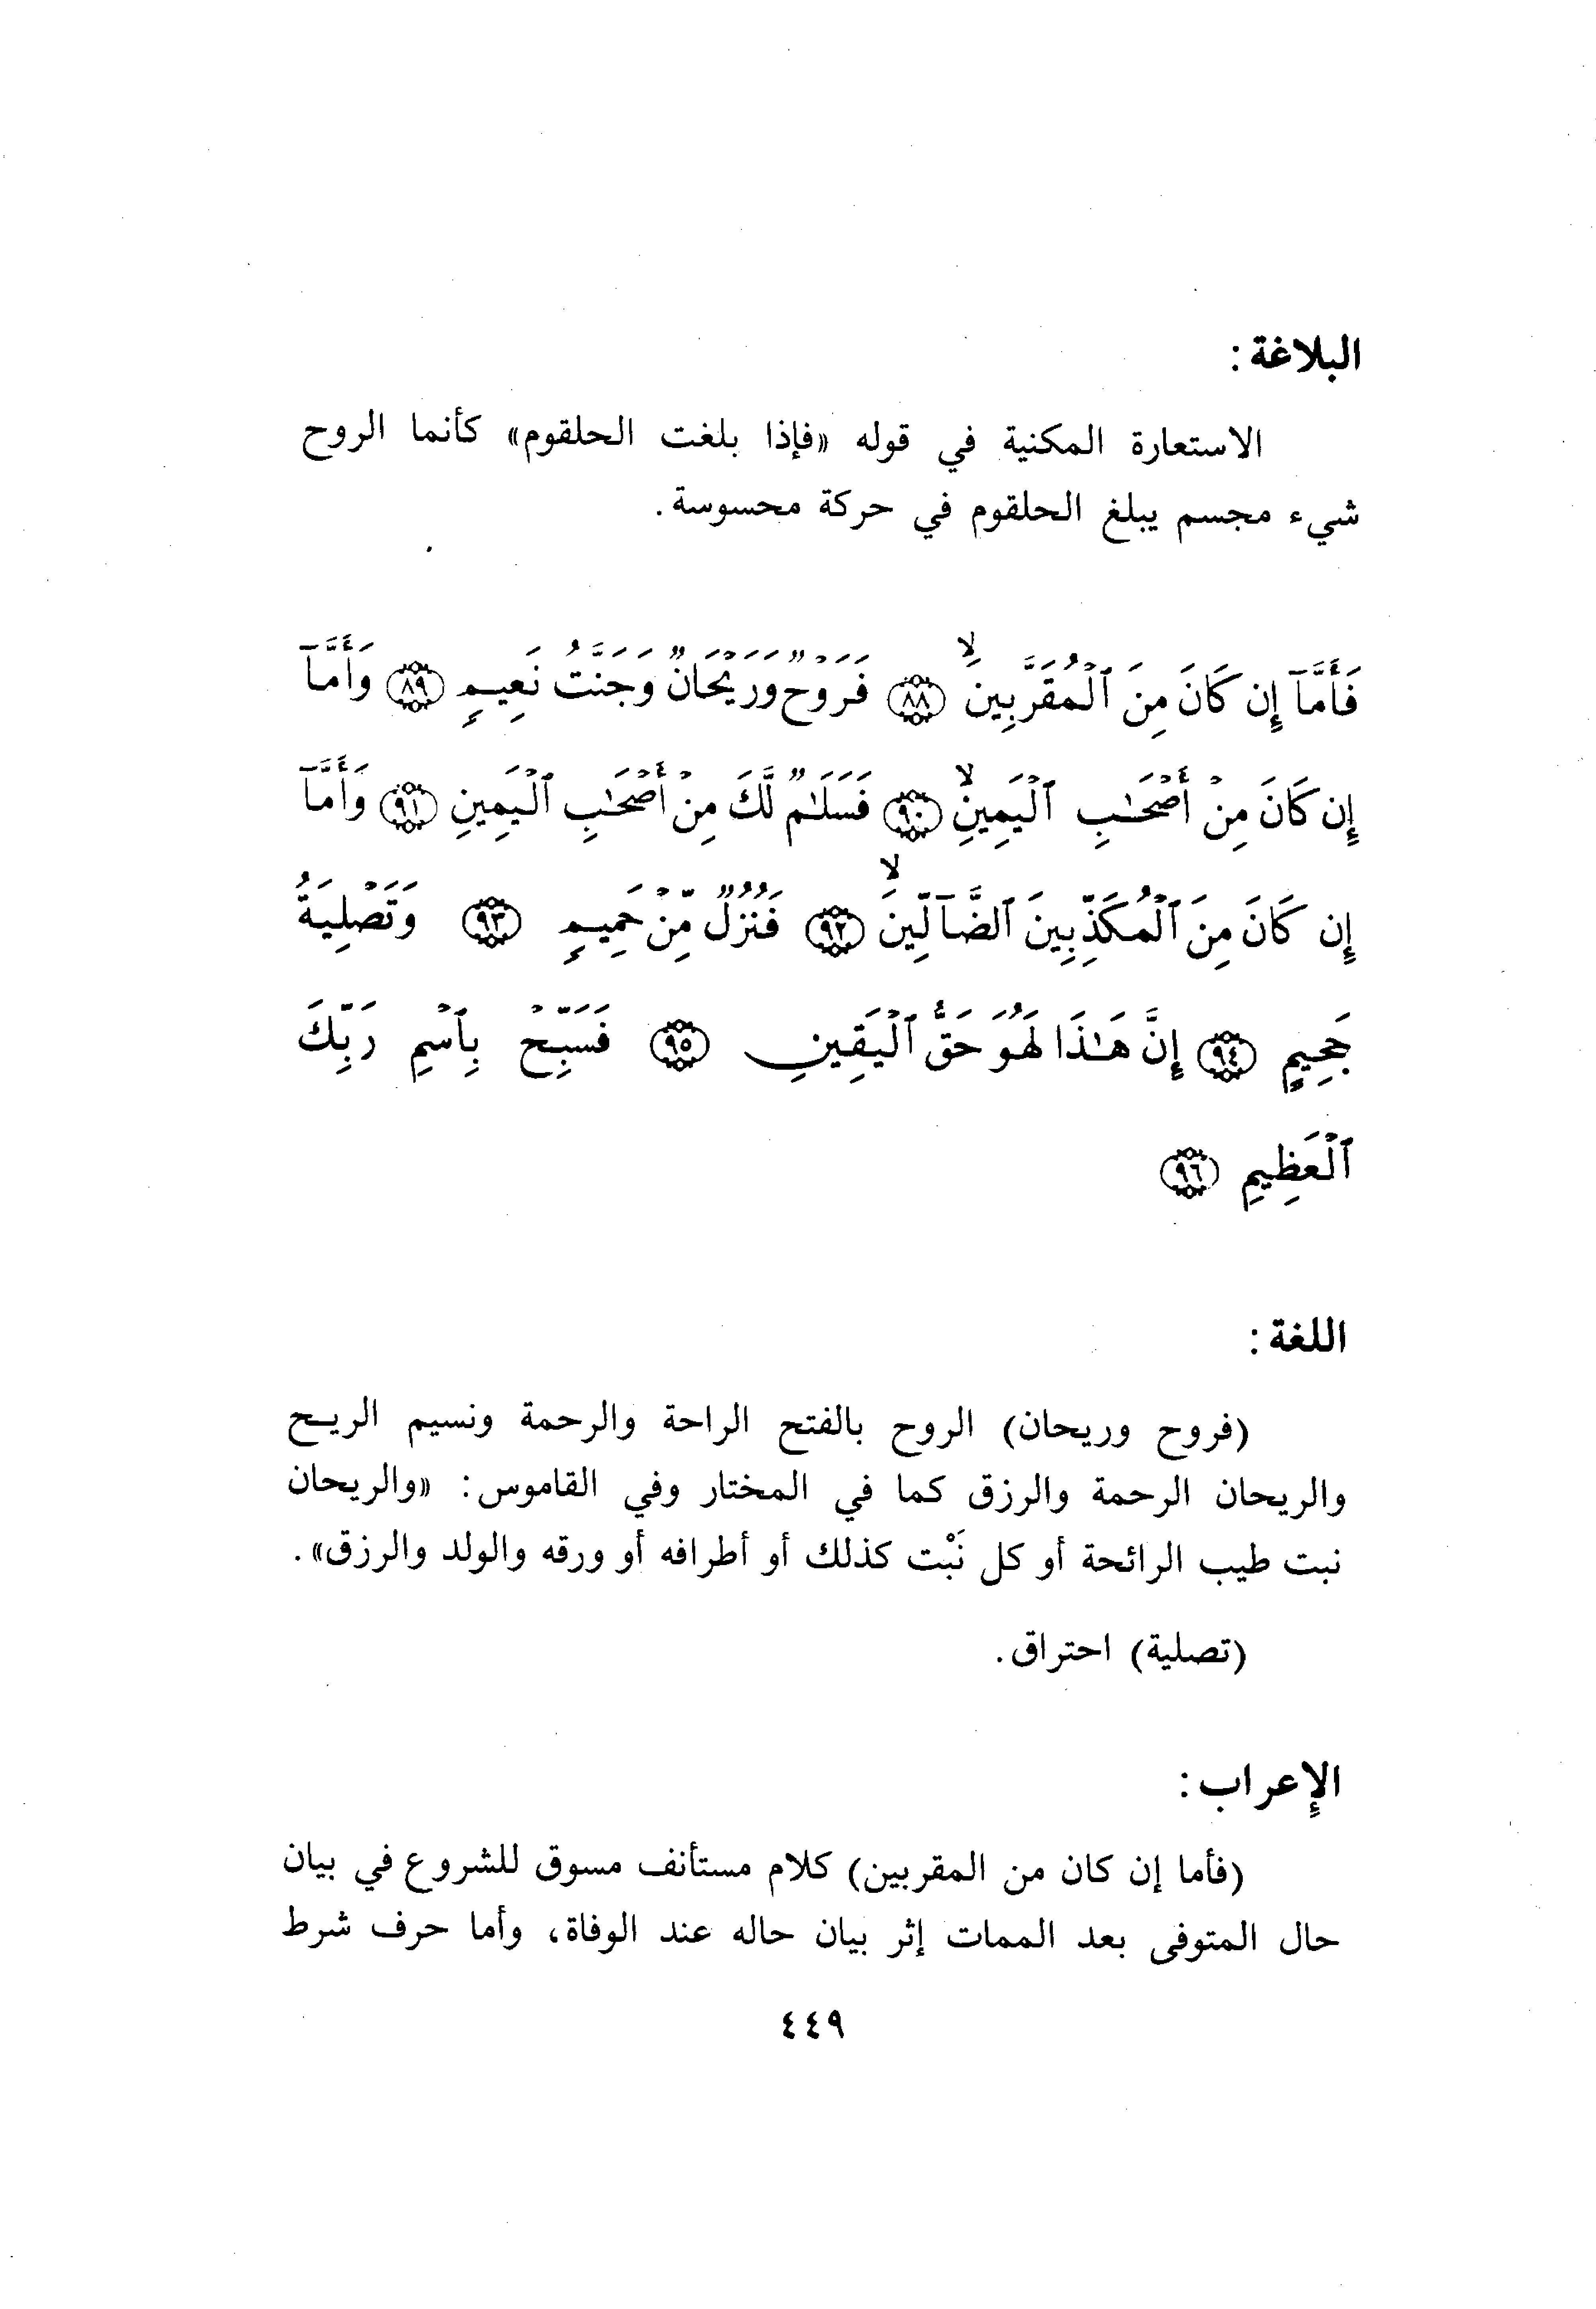 البلاغة :
الاستعارة المكنية في قوله «فإذا بلغت الحلقوم» كأنما الروح
شيء مجسم يبلغ الحلقوم في حركة محسوسة .
فَأَمَّآ إِن كَانَ مِنَ ٱلْمُقَرَّبِينَ ۙ ﴿٨٨﴾ فَرَوْحٌ وَرَيْحَانٌ وَجَنَّتُ نَعِيمٍ ﴿٨٩﴾ وَأَمَّآ
إِن كَانَ مِنْ أَصْحَٰبِ ٱلْيَمِينِ ۙ ﴿٩٠﴾ فَسَلَٰمٌ لَّكَ مِنْ أَصْحَٰبِ ٱلْيَمِينِ ﴿٩١﴾ وَأَمَّآ
إِن كَانَ مِنَ ٱلْمُكَذِّبِينَ ٱلضَّآلِّينَ ۙ ﴿٩٢﴾ فَنُزُلٌ مِّنْ حَمِيمٍ ﴿٩٣﴾ وَتَصْلِيَةُ
جَحِيمٍ ﴿٩٤﴾ إِنَّ هَٰذَا لَهُوَ حَقُّ ٱلْيَقِينِ ﴿٩٥﴾ فَسَبِّحْ بِٱسْمِ رَبِّكَ
ٱلْعَظِيمِ ﴿٩٦﴾
اللغة :
(فروح وريحان) الروح بالفتح الراحة والرحمة ونسيم الريح
والريحان الرحمة والرزق كما في المختار وفي القاموس : «والريحان
نبت طيب الرائحة أو كل نَبْت كذلك أو أطرافه أو ورقه والولد والرزق» .
(تصلية) احتراق .
الإعراب :
(فأما إن كان من المقربين) كلام مستأنف مسوق للشروع في بيان
حال المتوفى بعد الممات إثر بيان حاله عند الوفاة، وأما حرف شرط
٤٤٩